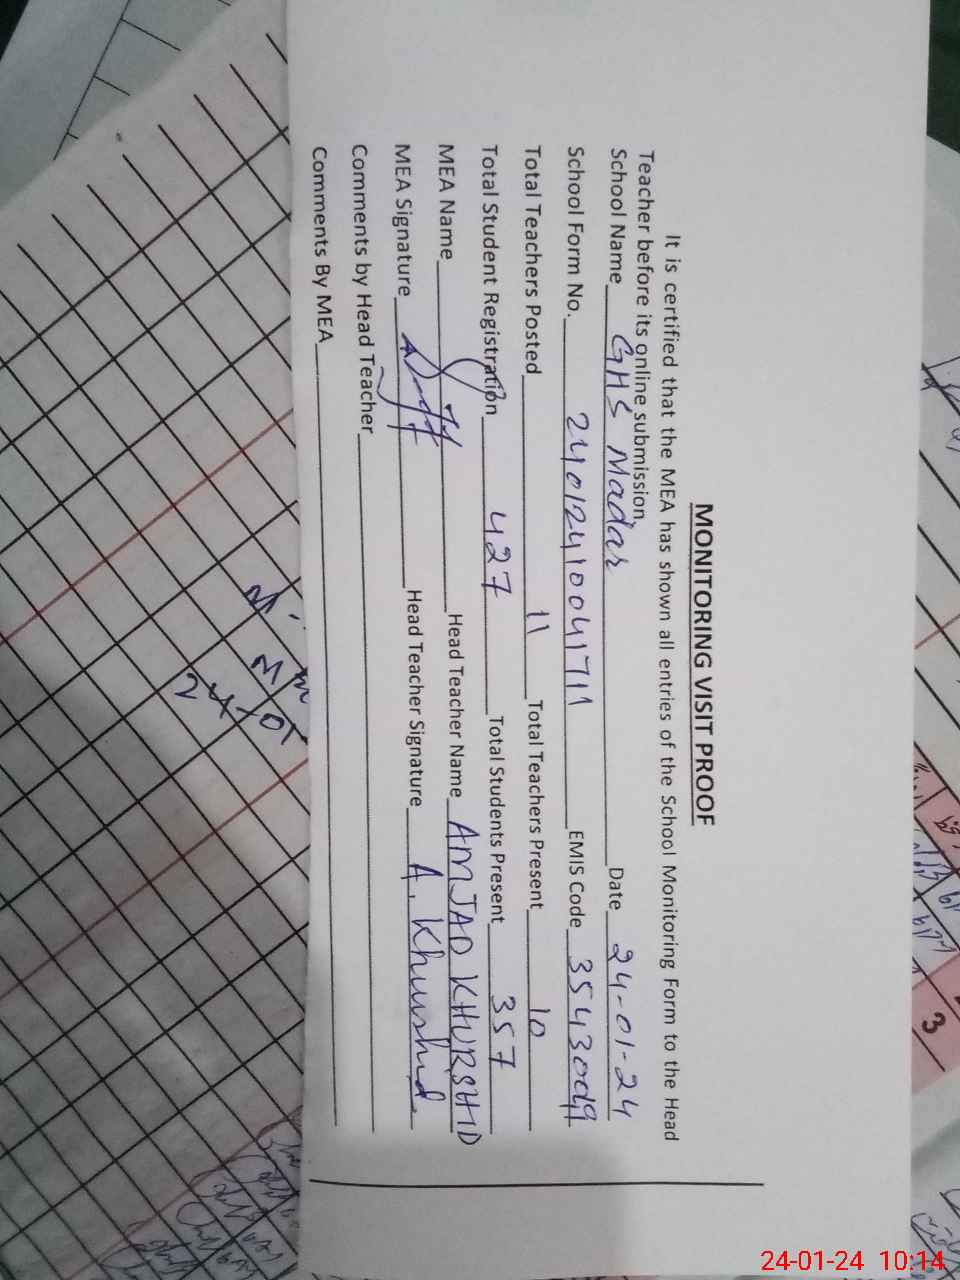 MONITORING VISIT PROOF
It is certified that the MEA has shown all entries of the School Monitoring Form to the Head
Teacher before its online submission
School Name GHS Madar Date 24-01-24
School Form No. 24012410041711 EMIS Code 35430049
Total Teachers Posted 11 Total Teachers Present 10
Total Student Registration 427 Total Students Present 357
MEA Name Head Teacher Name AMJAD KHURSHID
MEA Signature Head Teacher Signature A. Khurshid
Comments by Head Teacher
Comments By MEA
24-01
3
24-01-24 10:14